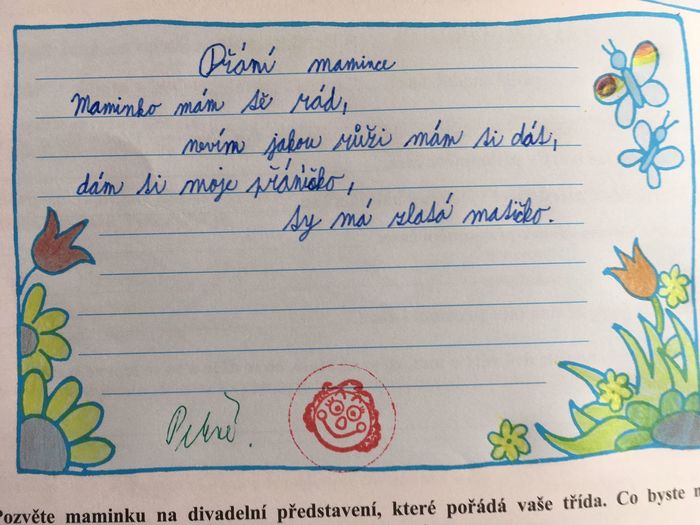 Přání mamince
Maminko mám tě rád,
nevím jakou růži mám ti dát,
dám ti moje přáníčko,
ty má zlatá matičko.
Pěkné.
Pozvěte maminku na divadelní představení, které pořádá vaše třída. Co byste